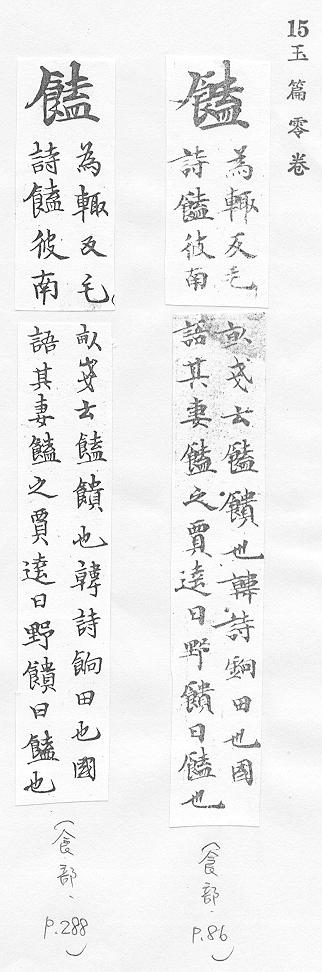 15玉篇零卷
饁
為輙反毛
詩饁彼南
畒戔云饁饋也韓詩餉田也國
語其妻饁之賈逵曰野饋曰饁也
(食部．
p.86)
饁
為輙反毛
詩饁彼南
畒戔云饁饋也韓詩餉田也國
語其妻饁之賈逵曰野饋曰饁也
(食部．
p.288)